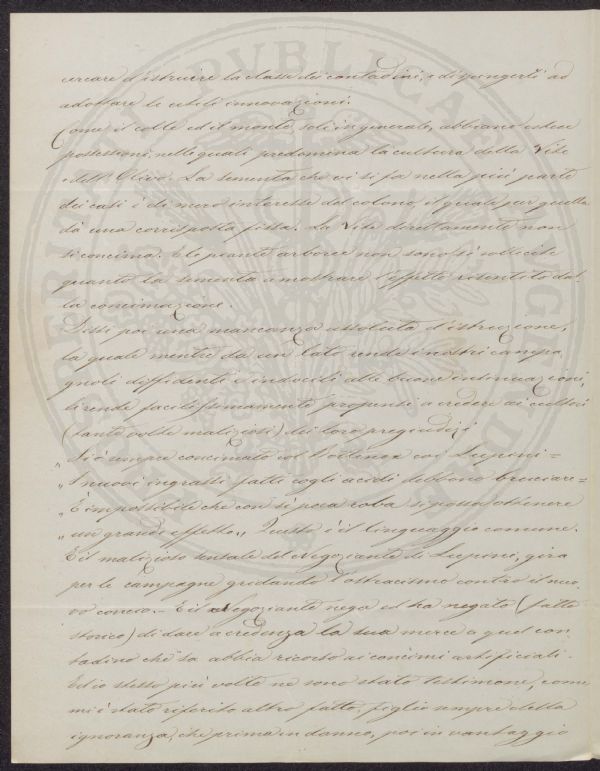 cercare d'istruire la classe dei contadini, e di spingerli ad
adottare le utili innovazioni.
Come il colle ed il monte, soli in generale, abbiano estese
possessioni, nelle quali predomina la cultura della Vite
e dell'Olivo. La sementa che vi si fa nella più parte
dei casi è di mero interesse del colono, il quale per quella
dà una corrisposta fissa. La Vite direttamente non
si concima. E le piante arboree non sono sì sollecite
quanto la sementa a mostrare l'effetto risentito dal-
la concimazione.
Dissi poi una mancanza assoluta d'istruzione,
la quale mentre da un lato rende i nostri campa
gnoli diffidenti e indocili alle buone insinuazioni,
li rende facilissimamente propensi a credere ai cultori
(tante volte maliziosi) dei loro pregiudizi
„ Si è sempre concimato col coi Lupini =
„ I nuovi ingrassi fatti cogli acidi debbono bruciare =
„ È impossibile che con sì poca roba si possa ottenere
„ un grande effetto „ Questo è il linguaggio comune.
E il malizioso sensale del Negoziante di Lupini, gira
per le campagne gridando l'ostracismo contro il nuo
vo concio. – E il Negoziante nega ed ha negato (fatto
storico) di dare a credenza la sua merce a quel con-
tadino che sa abbia ricorso ai concimi artificiali.
Ed io stesso più volte ne sono stato testimone, come
mi è stato riferito altro fatto, figlio sempre della
ignoranza, che prima in danno, poi in vantaggio